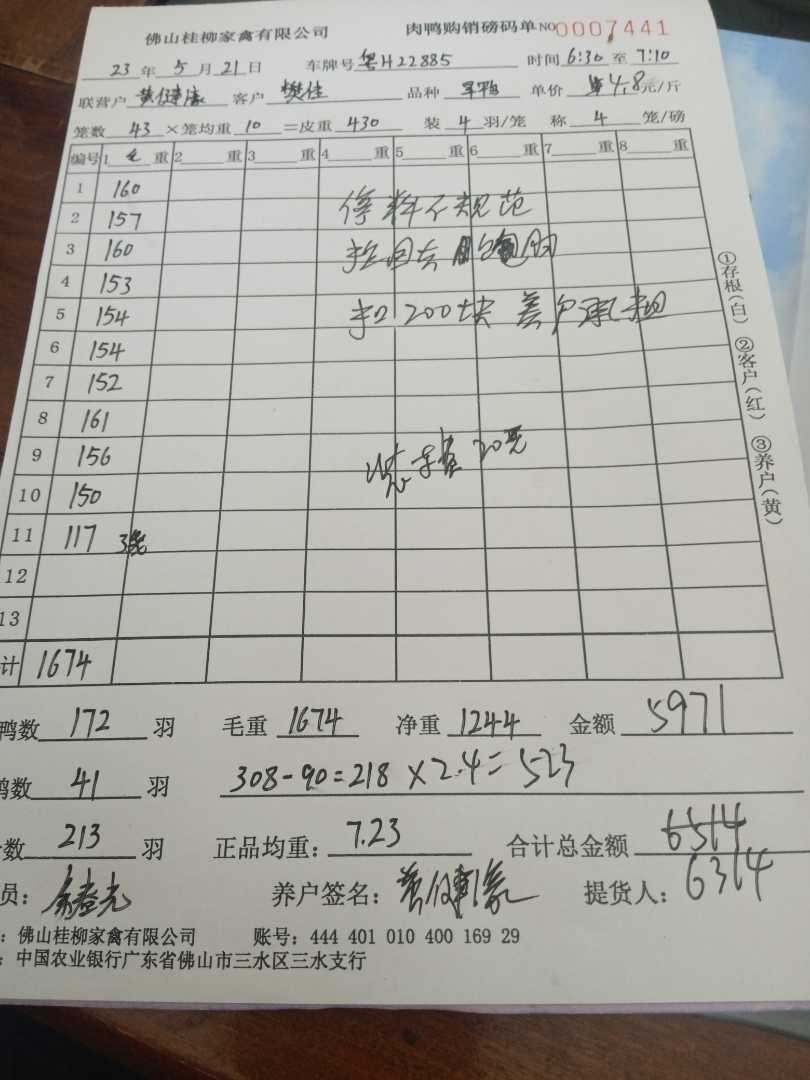 佛山桂柳家禽有限公司 肉鸭购销磅码单 NO 0007441
23 年 5 月 21 日 车牌号 粤H22885 时间 6:30 至 7:10
联营户 黄健濠 客户 樊佳 品种 单价 4.8 元/斤
笼数 43 ×笼均重 10 =皮重 430 装 4 羽/笼 称 4 笼/磅
编号 1 毛 重 2 重 3 重 4 重 5 重 6 重 7 重 8 重
1 160
2 157 停料不规范
3 160
4 153
5 154 扣200块 养户承担
6 154
7 152
8 161
9 156 20元
10 150
11 117 3笼
12
13
计 1674
鸭数 172 羽 毛重 1674 净重 1244 金额 5971
鸭数 41 羽 308-90=218×2.4=523
数 213 羽 正品均重: 7.23 合计总金额 6514
员: 养户签名: 黄健濠 提货人: 6314
: 佛山桂柳家禽有限公司 账号: 444 401 010 400 169 29
: 中国农业银行广东省佛山市三水区三水支行
①存根(白) ②客户(红) ③养户(黄)